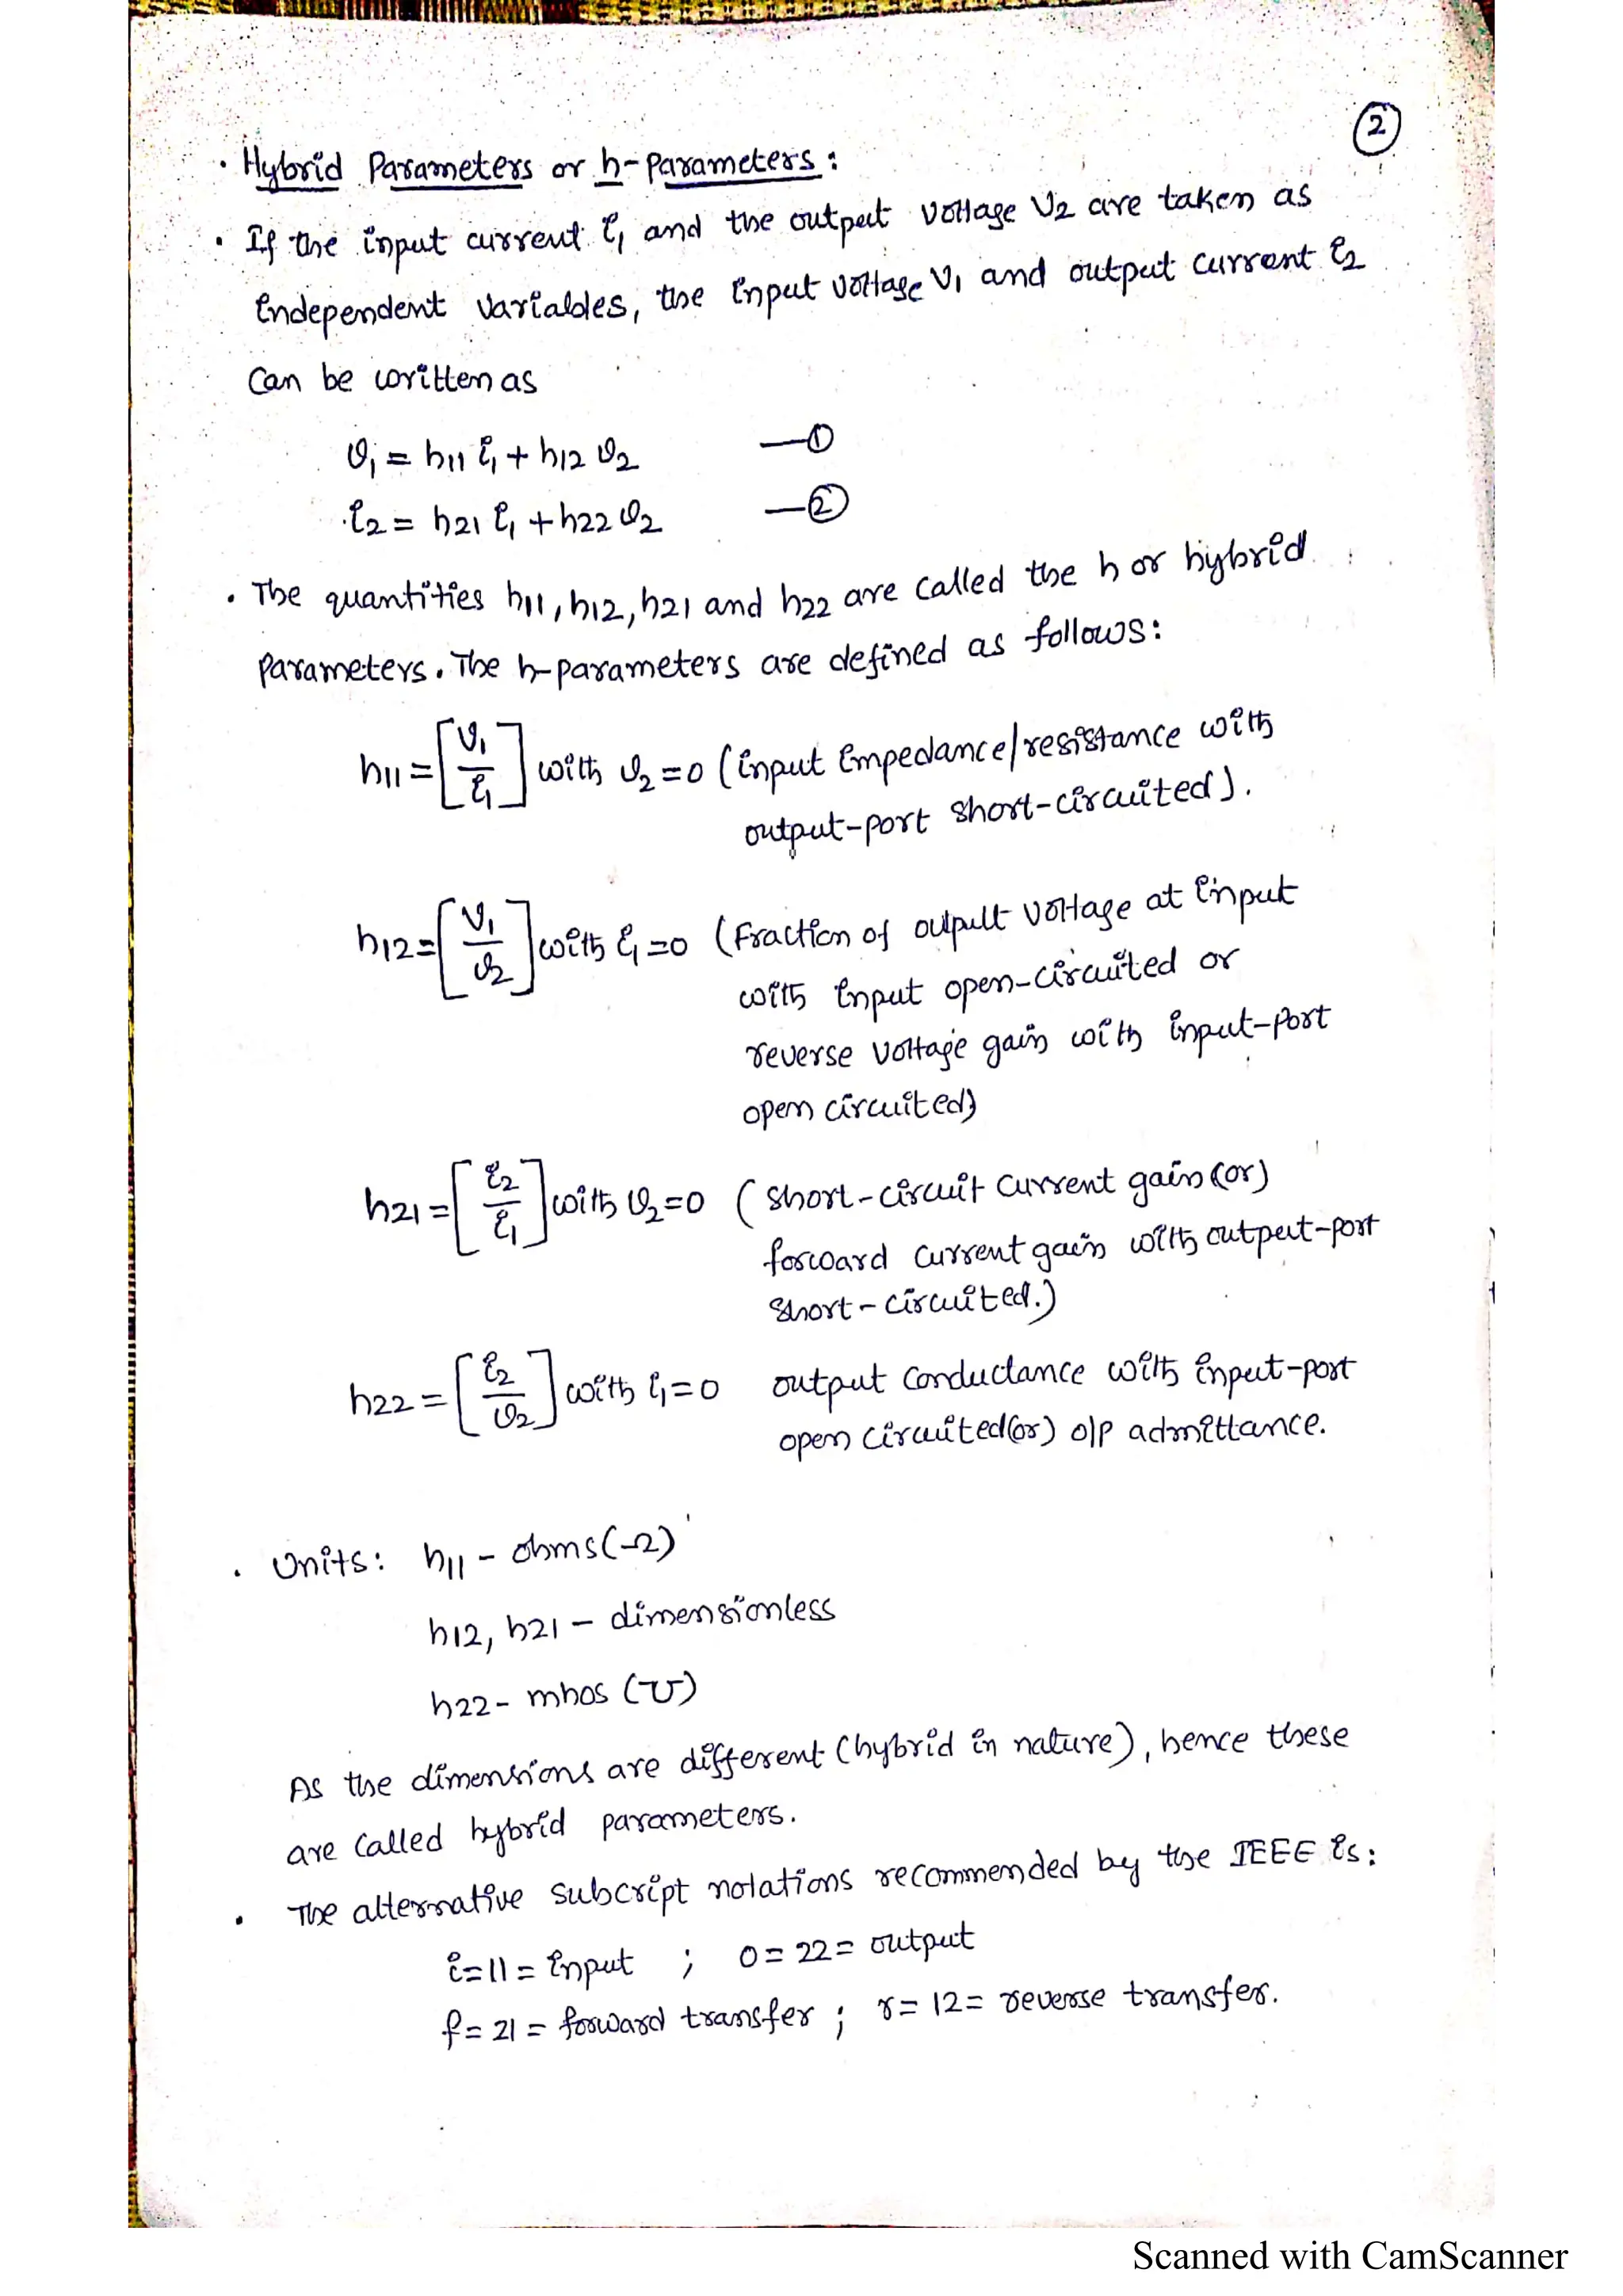 ②
· Hybrid Parameters or h-parameters :
· If the input current i₁ and the output voltage V₂ are taken as
independent variables, the input voltage V₁ and output current i₂
can be written as
v₁ = h11 i₁ + h12 v₂ —①
i₂ = h21 i₁ + h22 v₂ —②
· The quantities h11, h12, h21 and h22 are called the h or hybrid
parameters. The h-parameters are defined as follows:
h11 = [v₁/i₁] with v₂ = 0 (input impedance/resistance with
output-port short-circuited).
h12 = [v₁/v₂] with i₁ = 0 (Fraction of output voltage at input
with input open-circuited or
reverse voltage gain with input-port
open circuited)
h21 = [i₂/i₁] with v₂ = 0 (short-circuit current gain (or)
forward current gain with output-port
short-circuited.)
h22 = [i₂/v₂] with i₁ = 0 output conductance with input-port
open circuited(or) o/p admittance.
· Units: h11 - ohms(Ω)
h12, h21 - dimensionless
h22 - mhos (℧)
As the dimensions are different (hybrid in nature), hence these
are called hybrid parameters.
· The alternative subcript notations recommended by the IEEE is:
i = 11 = input ; o = 22 = output
f = 21 = forward transfer ; r = 12 = reverse transfer.
Scanned with CamScanner